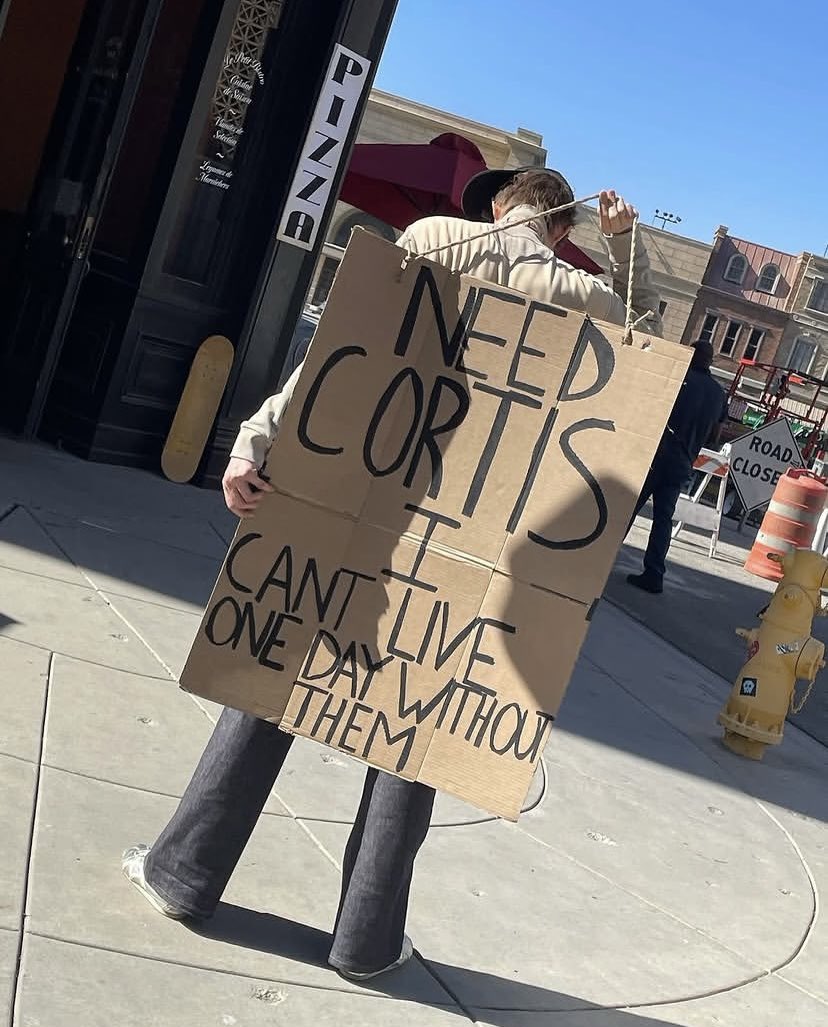 Le Petit Bistro
Cuisine
de Saison
~
Viandes de
Sélection
~
Légumes de
Maraîchers
PIZZA
NEED
CORTIS
I
CANT LIVE
ONE DAY WITHOUT
THEM
ROAD
CLOSE